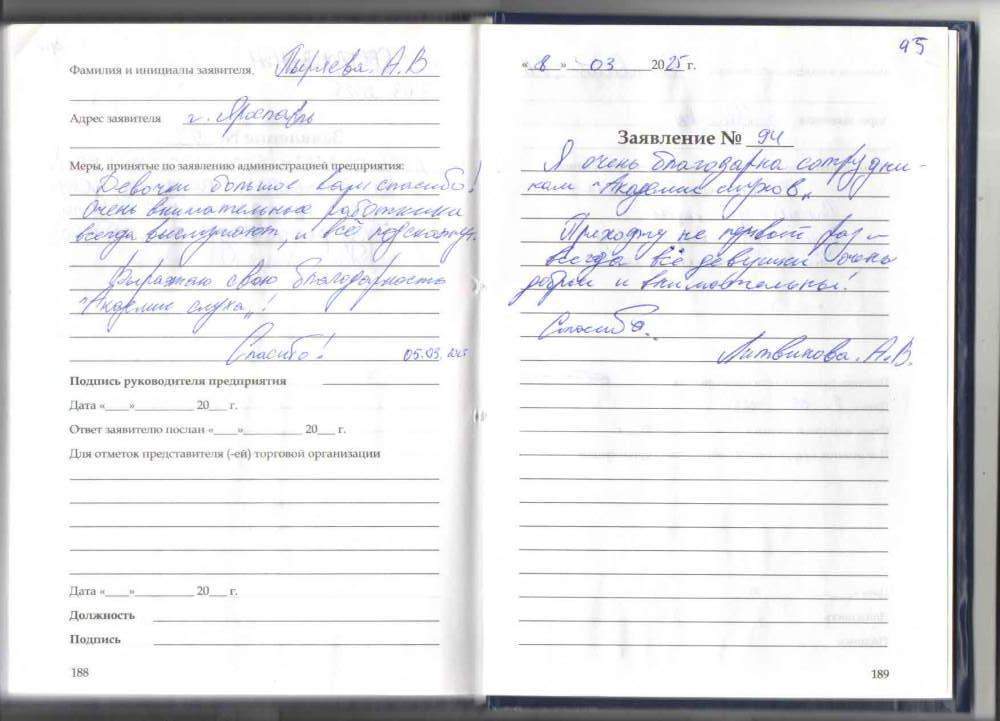 Фамилия и инициалы заявителя Пыряева. А.В
Адрес заявителя г. Ярославль
Меры, принятые по заявлению администрацией предприятия:
Девочки большое Вам спасибо!
Очень внимательные работники
всегда выслушают, и всё подскажут.
Выражаю свою благодарность
"Академии слуха"!
Спасибо! 05.03.2025
Подпись руководителя предприятия
Дата «___»__________ 20___ г.
Ответ заявителю послан «____»__________ 20___ г.
Для отметок представителя (-ей) торговой организации
Дата «____»__________ 20___ г.
Должность
Подпись
188
95
«8» 03 2025 г.
Заявление № 94
Я очень благодарна сотрудни-
кам "Академии слухов"
Прихожу не первый раз –
всегда все девушки очень
добрый и внимательны!
Спасибо.
Литвинова. А.В.
189